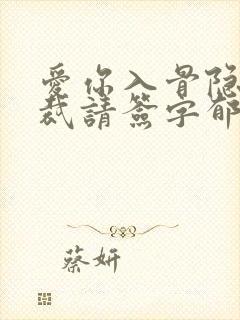 愛你入骨隐
裁請簽字郁
蔡妍